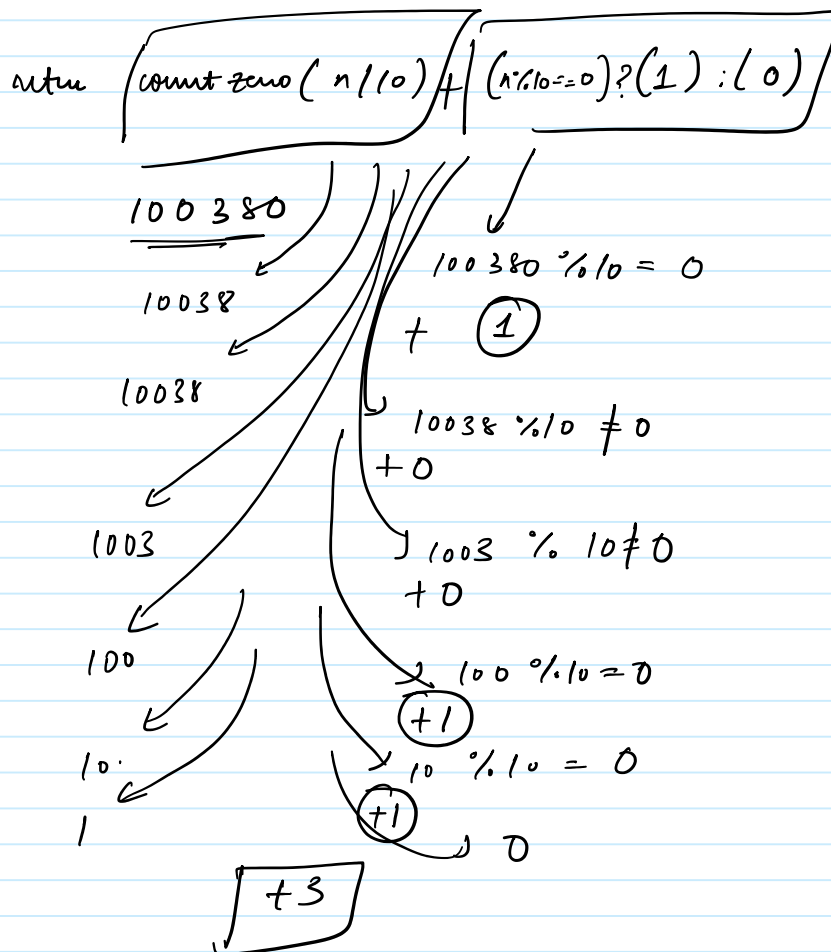 retu count zero ( n/10 ) + (n%10==0)?(1) : ( 0 )
100380
100380 %10 = 0
10038
+ 1
10038
10038 %10 ≠ 0
+ 0
1003
1003 % 10 ≠ 0
+ 0
100
100 %10 = 0
+1
10
10 %10 = 0
+1
1
0
+ 3